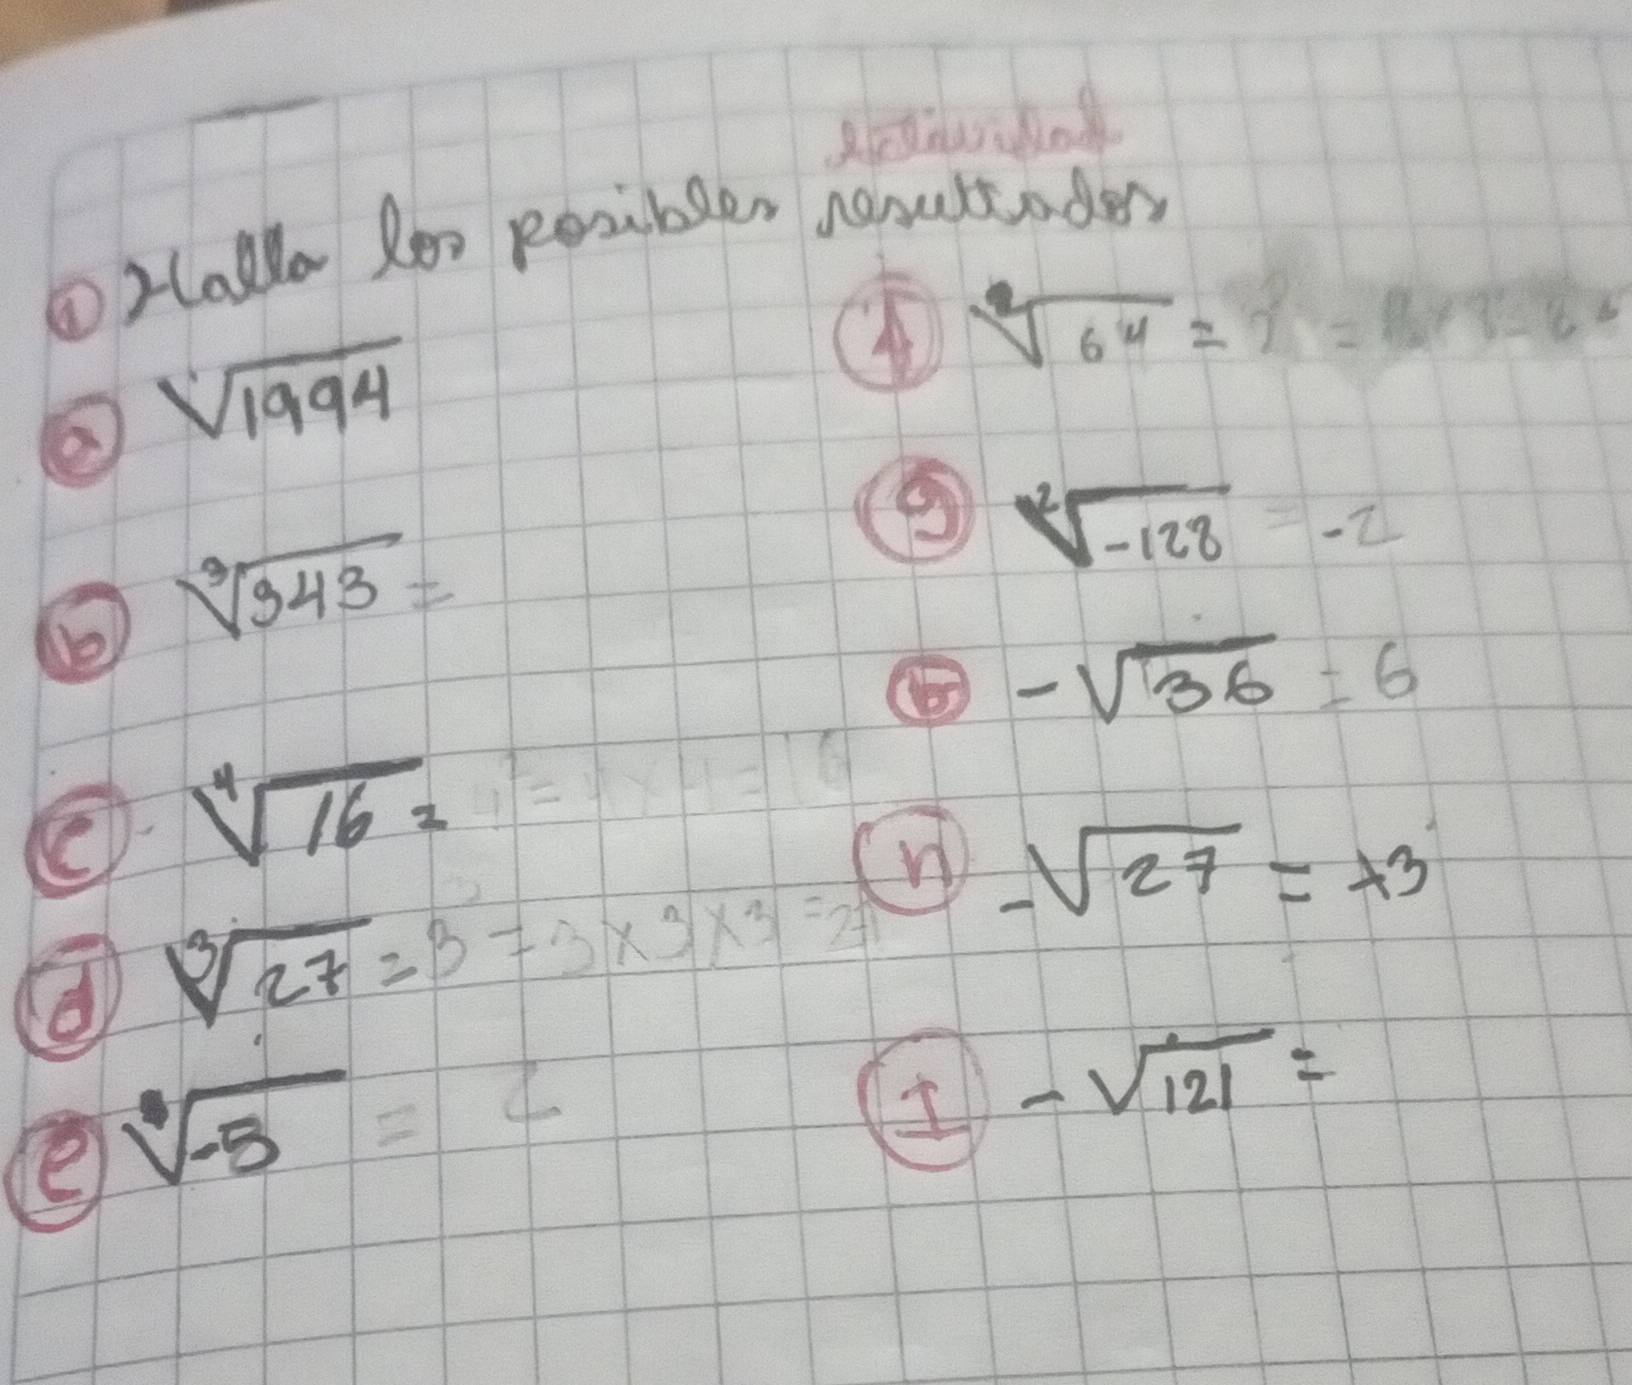 Actividad
① Halla los posibles resultados
ⓐ √1994
ⓑ ∛343 =
ⓒ ∜16 = 4² = 4 x 4 = 16
ⓓ ∛27 = 3 = 3 x 3 x 3 = 27
ⓔ √-5 = 2
ⓕ √64 =
ⓖ ²√-128 = -2
ⓑ -√36 = 6
ⓗ -√27 = +3
Ⓘ -√121 =